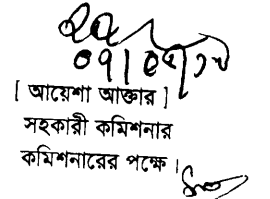 [ আয়েশা আক্তার ]
সহকারী কমিশনার
কমিশনারের পক্ষে।